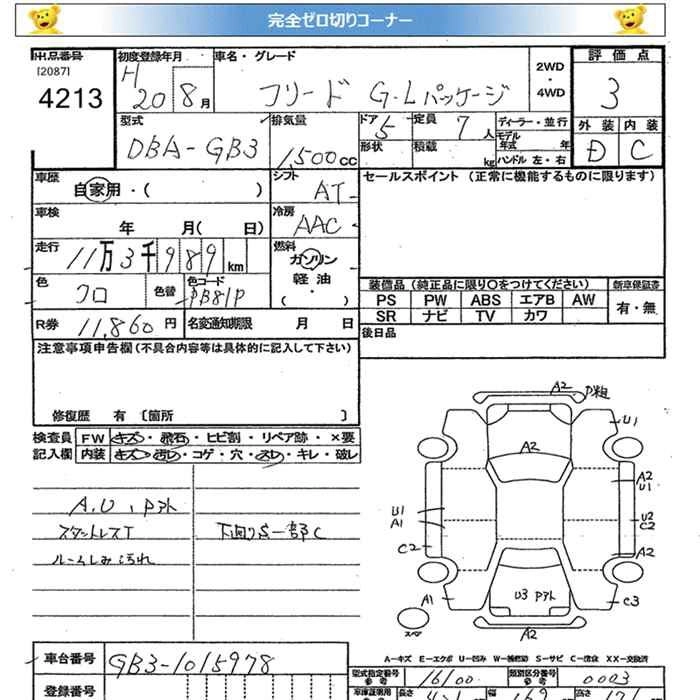 完全ゼロ切りコーナー
出品番号 初度登録年月 車名・グレード 評価点
[2087]
4213
H20 8月
フリード G・Lパッケージ
2WD
・
4WD
3
型式 排気量 ドア 定員 ディーラー・並行 外装 内装
DBA-GB3
1,500cc
5 7人
モデル年式 年
D C
形状 積載 kg ハンドル 左・右
車歴 シフト セールスポイント (正常に機能するものに限ります)
自家用・( )
AT
車検 冷房
年 月( 日)
AAC
走行 燃料
11万3千989km
ガソリン
軽油
( ・ )
色 色替 色コード
クロ
PB81P
装備品 (純正品に限り○をつけてください) 新車保証書
PS PW ABS エアB AW 有・無
SR ナビ TV カワ
R券 11,860円 名変通知期限 月 日
後日品
注意事項申告欄(不具合内容等は具体的に記入して下さい)
修復歴 有 [箇所 ]
検査員 FW キズ・飛石・ヒビ割・リペア跡・×要
記入欄 内装 キズ・汚レ・コゲ・穴・スレ・キレ・破レ
A.U、Pアト
スタットレスT
ルームしみ汚れ
下回りS一部C
A2 P粗
U1
A2
A2
U1
U1
A1
U2
C2
C2
A2
U3 Pアト
A1
C3
A2
スペア
A-キズ E-エクボ U-凹み W-補修跡 S-サビ C-腐食 XX-交換済
車台番号 GB3-1015978
型式指定番号 16100 類別区分番号 0003
参考 参考
登録番号
車庫証明用 長さ 421 幅 169 高さ